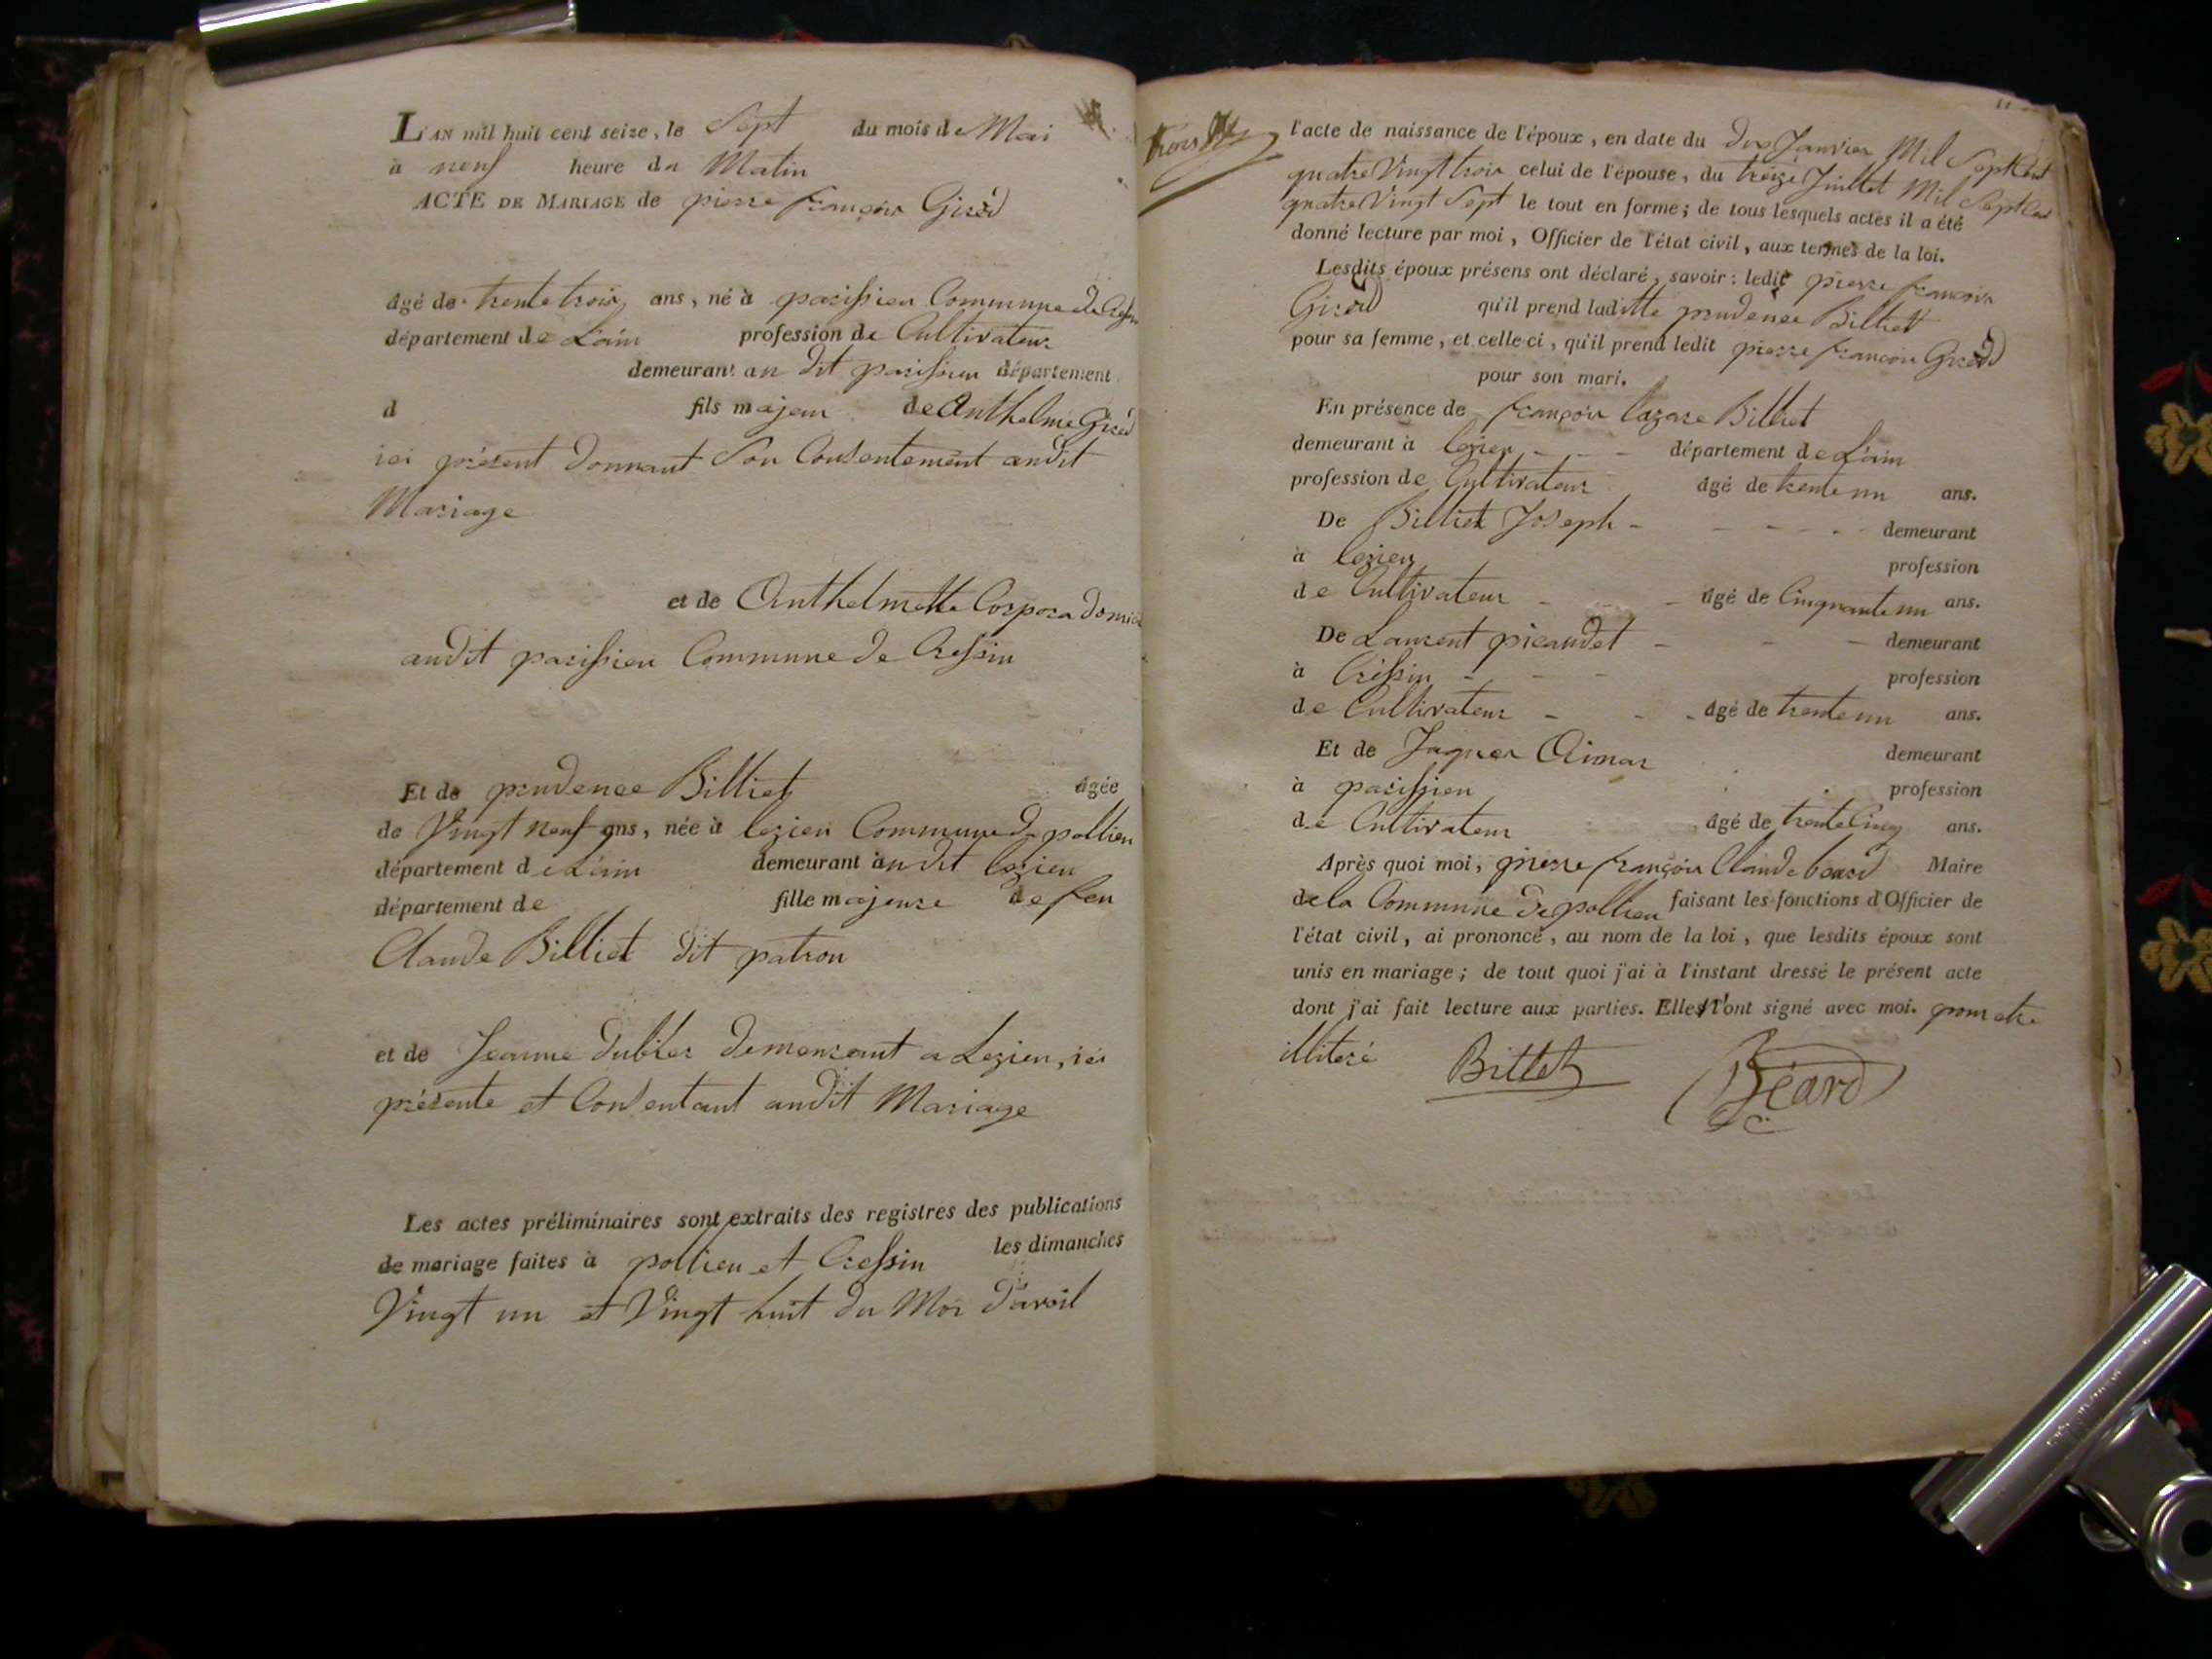 L'AN mil huit cent seize, le Sept du mois de Mai
à neuf heure du Matin
ACTE DE MARIAGE de pierre françois Girod
âgé de trente trois ans, né à parissieu Commune de
département de L'ain profession de Cultivateur
demeurant au dit parissieu département
d fils majeur de Anthelme Girod
ici présent donnant Son Consentement audit
Mariage
et de Anthelmette Corpora
audit parissieu Commune de Cressin
Et de prudence Billiet âgée
de Vingt neuf ans, née à lezieu Commune de pollieu
département de L'ain demeurant audit lezieu
département de fille majeure de feu
Claude Billiet dit patron
et de Jeanne dubler demeurant a Lezieu, ici
présente et Consentant audit Mariage
Les actes préliminaires sont extraits des registres des publications
de mariage faites à pollieu et Cressin les dimanches
Vingt un et Vingt huit du Moi d'avril
trois
l'acte de naissance de l'époux, en date du Janvier Mil Sept Cent
quatre Vingt trois celui de l'épouse, du treize Juillet Mil Sept Cent
quatre Vingt Sept le tout en forme; de tous lesquels actes il a été
donné lecture par moi, Officier de l'état civil, aux termes de la loi.
Lesdits époux présens ont déclaré, savoir: ledit pierre françois
Girod qu'il prend laditte prudence Billiet
pour sa femme, et celle ci, qu'il prend ledit pierre françois Girod
pour son mari.
En présence de françois lazare Billiet
demeurant à lezieu département de L'ain
profession de Cultivateur âgé de trente un ans.
De Billiet Joseph demeurant
à lezieu profession
de Cultivateur âgé de Cinquante un ans.
De Laurent picaudet demeurant
à Cressin profession
de Cultivateur âgé de trente un ans.
Et de Jaques Aimar demeurant
à parissieu profession
de Cultivateur âgé de trente Cinq ans.
Après quoi moi, pierre françois Claude beard Maire
de la Commune de pollieu faisant les fonctions d'Officier de
l'état civil, ai prononcé, au nom de la loi, que lesdits époux sont
unis en mariage; de tout quoi j'ai à l'instant dressé le présent acte
dont j'ai fait lecture aux parties. Elles n'ont signé avec moi. pour etre
illiteré Billet Béard